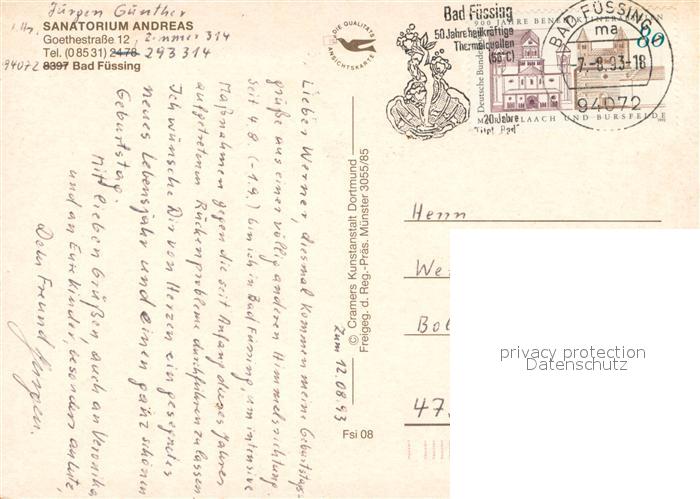 Jürgen Günther
SANATORIUM ANDREAS
Goethestraße 12, Zimmer 314
Tel. (0 85 31) 2478 293314
94072 8397 Bad Füssing
Lieber Werner, diesmal kommen meine Geburtstags-
grüße aus einer völlig anderen Himmelsrichtung.
Seit 4.8. (-1.9.) bin ich in Bad Füssing, um intensive
Maßnahmen gegen die seit Anfang dieses Jahres
aufgetretenen Rückenprobleme durchführen zu lassen.
Ich wünsche Dir von Herzen ein gesegnetes
neues Lebensjahr und einen ganz schönen
Geburtstag.
Mit lieben Grüßen auch an Veronika
und an Eure Kinder, besonders an Ute,
Dein Freund Jürgen.
zum 12.08.93
DIE QUALITÄTS
ANSICHTSKARTE
© Cramers Kunstanstalt Dortmund
Freigeg. d. Reg.-Präs. Münster 3055/85
Fsi 08
Bad Füssing
50 Jahre heilkräftige
Thermalquellen
(56°C)
20 Jahre
"Titel Bad"
900 JAHRE BENEDIKTINERABTEIEN
Deutsche Bundespost
80
MARIA LAACH UND BURSFELDE
BAD FÜSSING
ma
-7.-8.93-18
94072
Herrn
We
Bol
47
privacy protection
Datenschutz